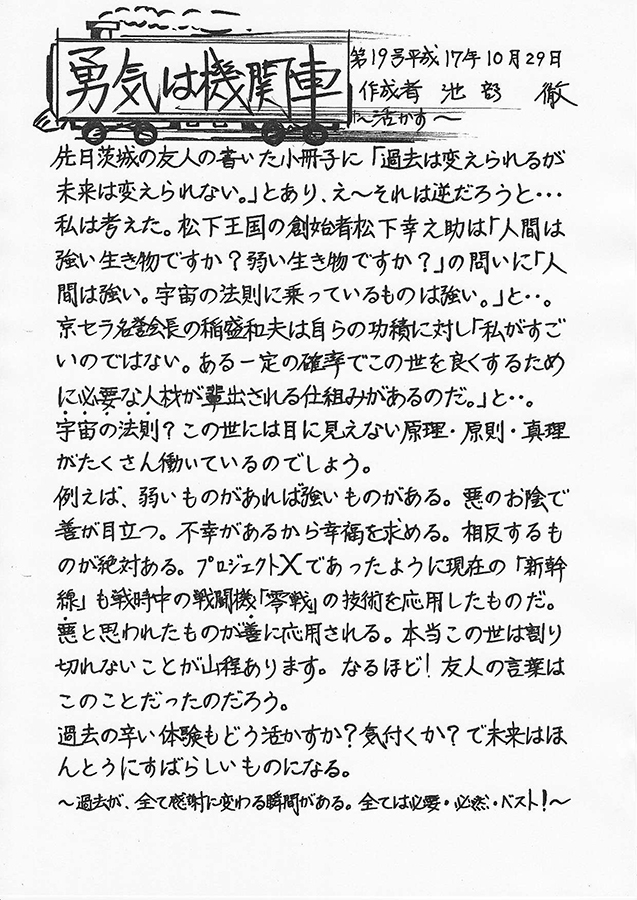 勇気は機関車
第19号平成17年10月29日
作成者 池部 徹
〜活かす〜
先日茨城の友人の書いた小冊子に「過去は変えられるが
未来は変えられない。」とあり、え〜それは逆だろうと・・・
私は考えた。松下王国の創始者松下幸之助は「人間は
強い生き物ですか？弱い生き物ですか？」の問いに「人
間は強い。宇宙の法則に乗っているものは強い。」と・・。
京セラ名誉会長の稲盛和夫は自らの功績に対し「私がすご
いのではない。ある一定の確率でこの世を良くするため
に必要な人材が輩出される仕組みがあるのだ。」と・・。
宇宙の法則？この世には目に見えない原理・原則・真理
がたくさん働いているのでしょう。
例えば、弱いものがあれば強いものがある。悪のお陰で
善が目立つ。不幸があるから幸福を求める。相反するも
のが絶対ある。プロジェクトXであったように現在の「新幹
線」も戦時中の戦闘機「零戦」の技術を応用したものだ。
悪と思われたものが善に応用される。本当この世は割り
切れないことが山程あります。なるほど！友人の言葉は
このことだったのだろう。
過去の辛い体験もどう活かすか？気付くか？で未来はほ
んとうにすばらしいものになる。
〜過去が、全て感謝に変わる瞬間がある。全ては必要・必然・ベスト！〜